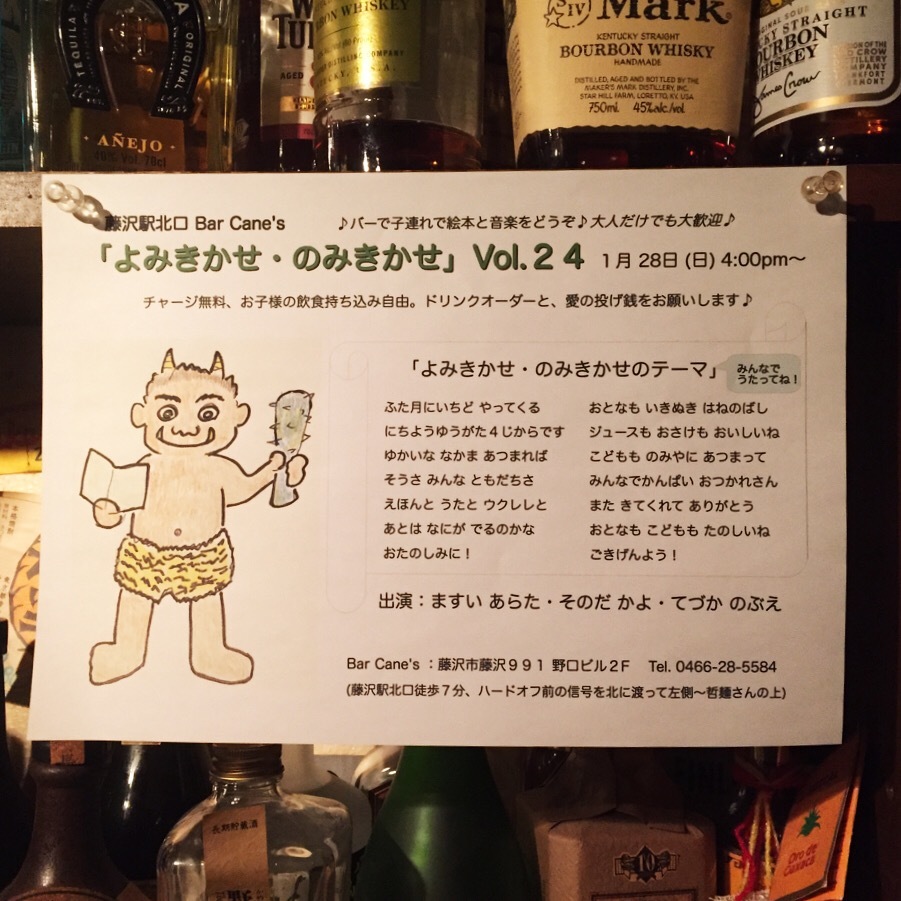 TEQUILA
ORIGINAL
AÑEJO
40% Vol. 70cl
AGED
WHISKEY
Mark
SIV
KENTUCKY STRAIGHT
BOURBON WHISKY
HANDMADE
DISTILLED, AGED AND BOTTLED BY THE
MAKER'S MARK DISTILLERY, INC.
STAR HILL FARM, LORETTO, KY. USA
750ml. 45%alc./vol.
ORIGINAL SOUR
KY STRAIGHT
BOURBON
WHISKEY
藤沢駅北口 Bar Cane's ♪バーで子連れで絵本と音楽をどうぞ♪大人だけでも大歓迎♪
「よみきかせ・のみきかせ」Vol.２４ 1月 28日 (日) 4:00pm〜
チャージ無料、お子様の飲食持ち込み自由。ドリンクオーダーと、愛の投げ銭をお願いします♪
「よみきかせ・のみきかせのテーマ」
みんなで
うたってね！
ふた月にいちど やってくる
にちようゆうがた４じからです
ゆかいな なかま あつまれば
そうさ みんな ともだちさ
えほんと うたと ウクレレと
あとは なにが でるのかな
おたのしみに！
おとなも いきぬき はねのばし
ジュースも おさけも おいしいね
こどもも のみやに あつまって
みんなでかんぱい おつかれさん
また きてくれて ありがとう
おとなも こどもも たのしいね
ごきげんよう！
出演：ますい あらた・そのだ かよ・てづか のぶえ
Bar Cane's ：藤沢市藤沢９９１ 野口ビル２F Tel. 0466-28-5584
(藤沢駅北口徒歩７分、ハードオフ前の信号を北に渡って左側〜哲麺さんの上)
長期貯蔵酒
Oro de
Oaxaca